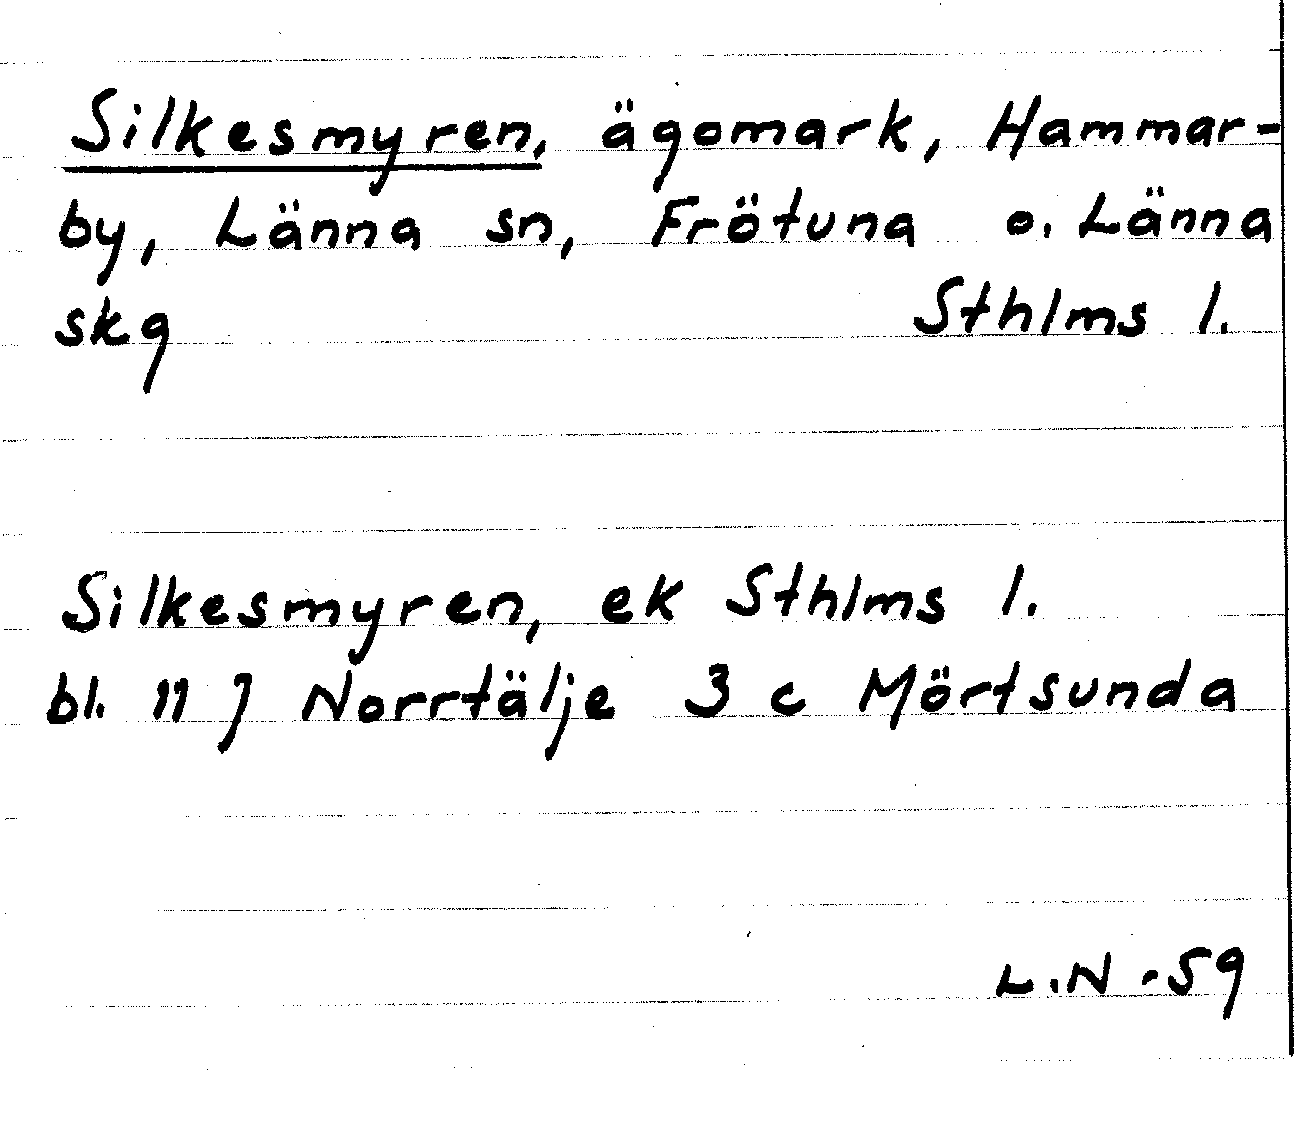 Silkesmyren, ägomark, Hammar-
by, Länna sn, Frötuna o. Länna
skg Sthlms l.
Silkesmyren, ek Sthlms l.
bl. 11 J Norrtälje 3 c Mörtsunda
L.N -59